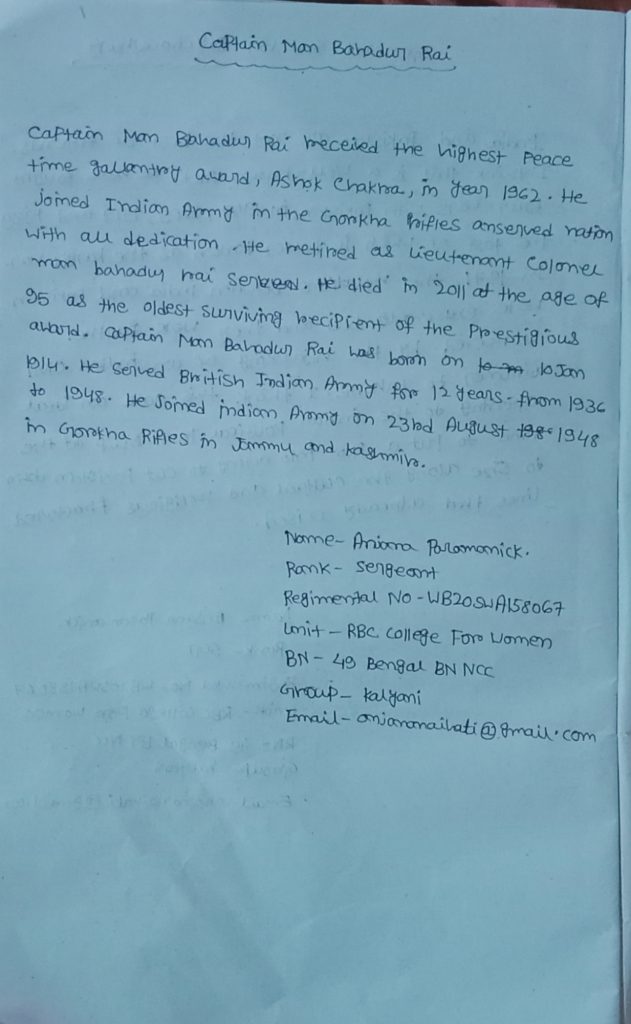 Captain Man Bahadur Rai
Captain Man Bahadur Rai received the highest Peace
time gallantry award, Ashok Chakra, in year 1962. He
Joined Indian Army in the Gorkha Rifles anserved nation
with all dedication. He retired as Lieutenant Colonel
man bahadur rai. He died in 2011 at the age of
95 as the oldest surviving recipient of the Prestigious
award. Captain Man Bahadur Rai was born on 10 Jan
1914. He Served British Indian Army for 12 years - from 1936
to 1948. He Joined indian Army on 23rd August 1948
in Gorkha Rifles in Jammu and kashmir.
Name - Paramanick.
Rank - Sergeant
Regimental NO - WB20SWA158067
Unit - RBC College For Women
BN - 49 Bengal BN NCC
Group - Kalyani
Email - @gmail.com